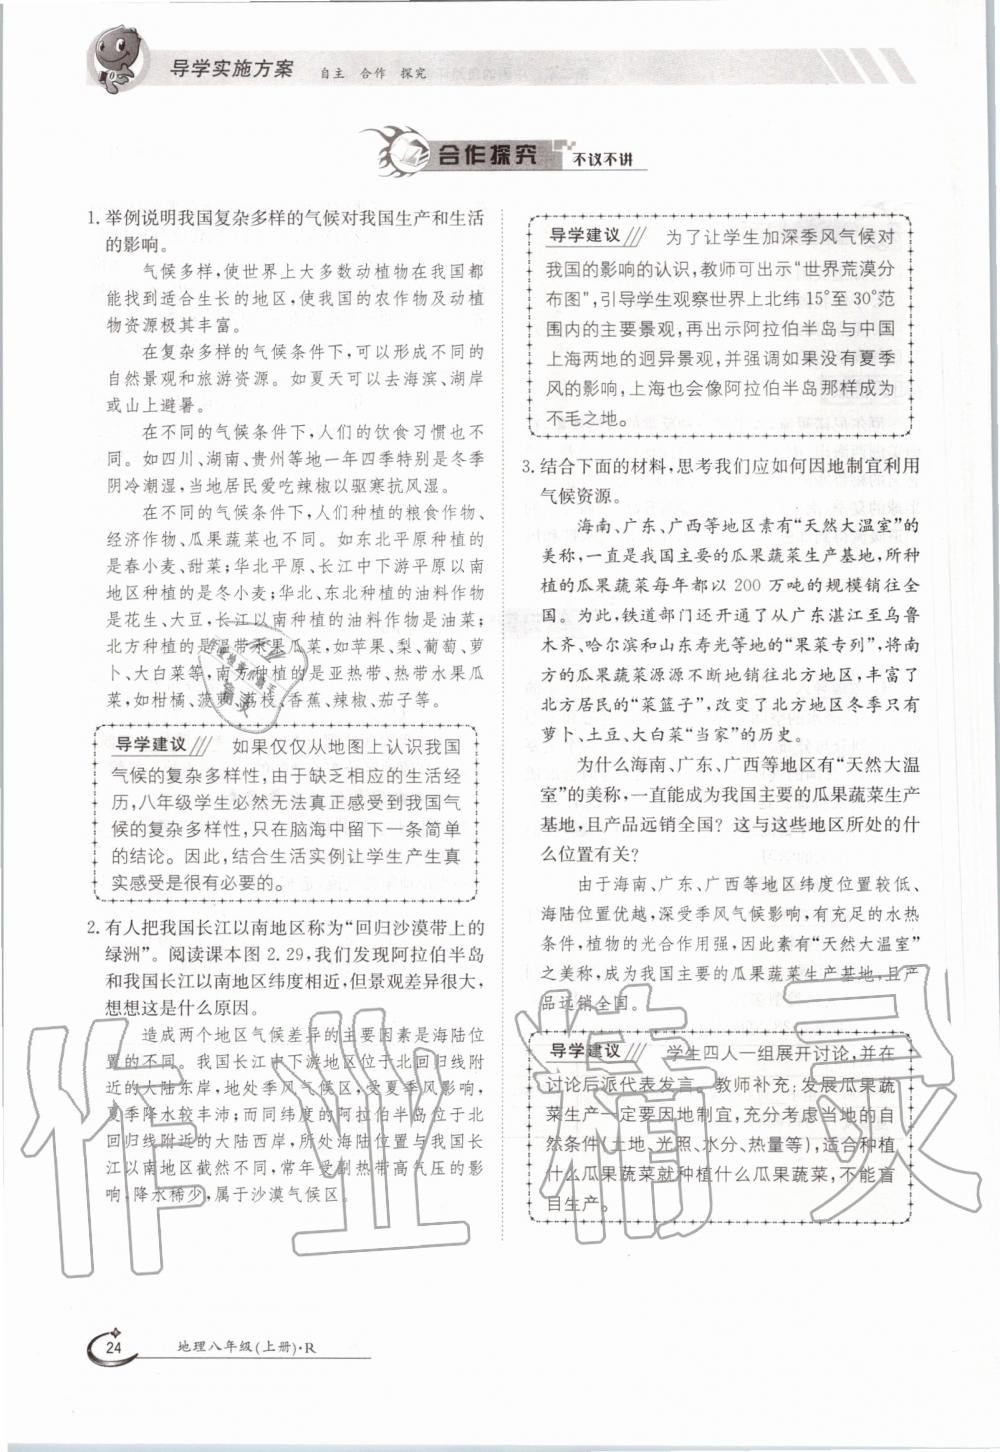 导学实施方案 自主 合作 探究
合作探究 不议不讲
1. 举例说明我国复杂多样的气候对我国生产和生活
的影响。
气候多样,使世界上大多数动植物在我国都
能找到适合生长的地区,使我国的农作物及动植
物资源极其丰富。
在复杂多样的气候条件下,可以形成不同的
自然景观和旅游资源。如夏天可以去海滨、湖岸
或山上避暑。
在不同的气候条件下,人们的饮食习惯也不
同。如四川、湖南、贵州等地一年四季特别是冬季
阴冷潮湿,当地居民爱吃辣椒以驱寒抗风湿。
在不同的气候条件下,人们种植的粮食作物、
经济作物、瓜果蔬菜也不同。如东北平原种植的
是春小麦、甜菜;华北平原、长江中下游平原以南
地区种植的是冬小麦;华北、东北种植的油料作物
是花生、大豆,长江以南种植的油料作物是油菜;
北方种植的是温带水果瓜菜,如苹果、梨、葡萄、萝
卜、大白菜等,南方种植的是亚热带、热带水果瓜
菜,如柑橘、菠萝、荔枝、香蕉、辣椒、茄子等。
导学建议 如果仅仅从地图上认识我国
气候的复杂多样性,由于缺乏相应的生活经
历,八年级学生必然无法真正感受到我国气
候的复杂多样性,只在脑海中留下一条简单
的结论。因此,结合生活实例让学生产生真
实感受是很有必要的。
2. 有人把我国长江以南地区称为“回归沙漠带上的
绿洲”。阅读课本图 2.29,我们发现阿拉伯半岛
和我国长江以南地区纬度相近,但景观差异很大,
想想这是什么原因。
造成两个地区气候差异的主要因素是海陆位
置的不同。我国长江中下游地区位于北回归线附
近的大陆东岸,地处季风气候区,受夏季风影响,
夏季降水较丰沛;而同纬度的阿拉伯半岛位于北
回归线附近的大陆西岸,所处海陆位置与我国长
江以南地区截然不同,常年受副热带高气压的影
响,降水稀少,属于沙漠气候区。
导学建议 为了让学生加深季风气候对
我国的影响的认识,教师可出示“世界荒漠分
布图”,引导学生观察世界上北纬 15°至 30°范
围内的主要景观,再出示阿拉伯半岛与中国
上海两地的迥异景观,并强调如果没有夏季
风的影响,上海也会像阿拉伯半岛那样成为
不毛之地。
3. 结合下面的材料,思考我们应如何因地制宜利用
气候资源。
海南、广东、广西等地区素有“天然大温室”的
美称,一直是我国主要的瓜果蔬菜生产基地,所种
植的瓜果蔬菜每年都以 200 万吨的规模销往全
国。为此,铁道部门还开通了从广东湛江至乌鲁
木齐、哈尔滨和山东寿光等地的“果菜专列”,将南
方的瓜果蔬菜源源不断地销往北方地区,丰富了
北方居民的“菜篮子”,改变了北方地区冬季只有
萝卜、土豆、大白菜“当家”的历史。
为什么海南、广东、广西等地区有“天然大温
室”的美称,一直能成为我国主要的瓜果蔬菜生产
基地,且产品远销全国?这与这些地区所处的什
么位置有关?
由于海南、广东、广西等地区纬度位置较低、
海陆位置优越,深受季风气候影响,有充足的水热
条件,植物的光合作用强,因此素有“天然大温室”
之美称,成为我国主要的瓜果蔬菜生产基地,且产
品远销全国。
导学建议 学生四人一组展开讨论,并在
讨论后派代表发言。教师补充:发展瓜果蔬
菜生产一定要因地制宜,充分考虑当地的自
然条件(土地、光照、水分、热量等),适合种植
什么瓜果蔬菜就种植什么瓜果蔬菜,不能盲
目生产。
作业精灵
24 地理八年级(上册)·R